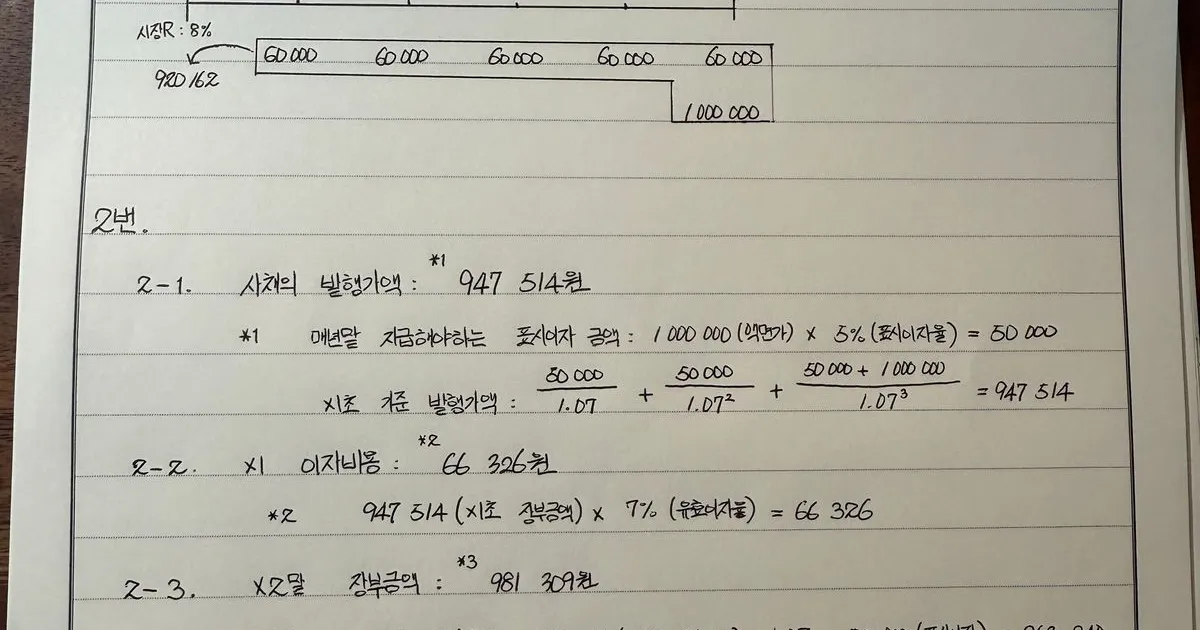 시장R : 8%
60 000 60 000 60 000 60 000 60 000
920 162
1 000 000
2번.
2-1. 사채의 발행가액 : *1 947 514원
*1 매년말 지급해야하는 표시이자 금액 : 1 000 000 (액면가) × 5% (표시이자율) = 50 000
X1초 기준 발행가액 : 50 000 / 1.07 + 50 000 / 1.07² + 50 000 + 1 000 000 / 1.07³ = 947 514
2-2. X1 이자비용 : *2 66 326원
*2 947 514 (X1초 장부금액) × 7% (유효이자율) = 66 326
2-3. X2말 장부금액 : *3 981 309원